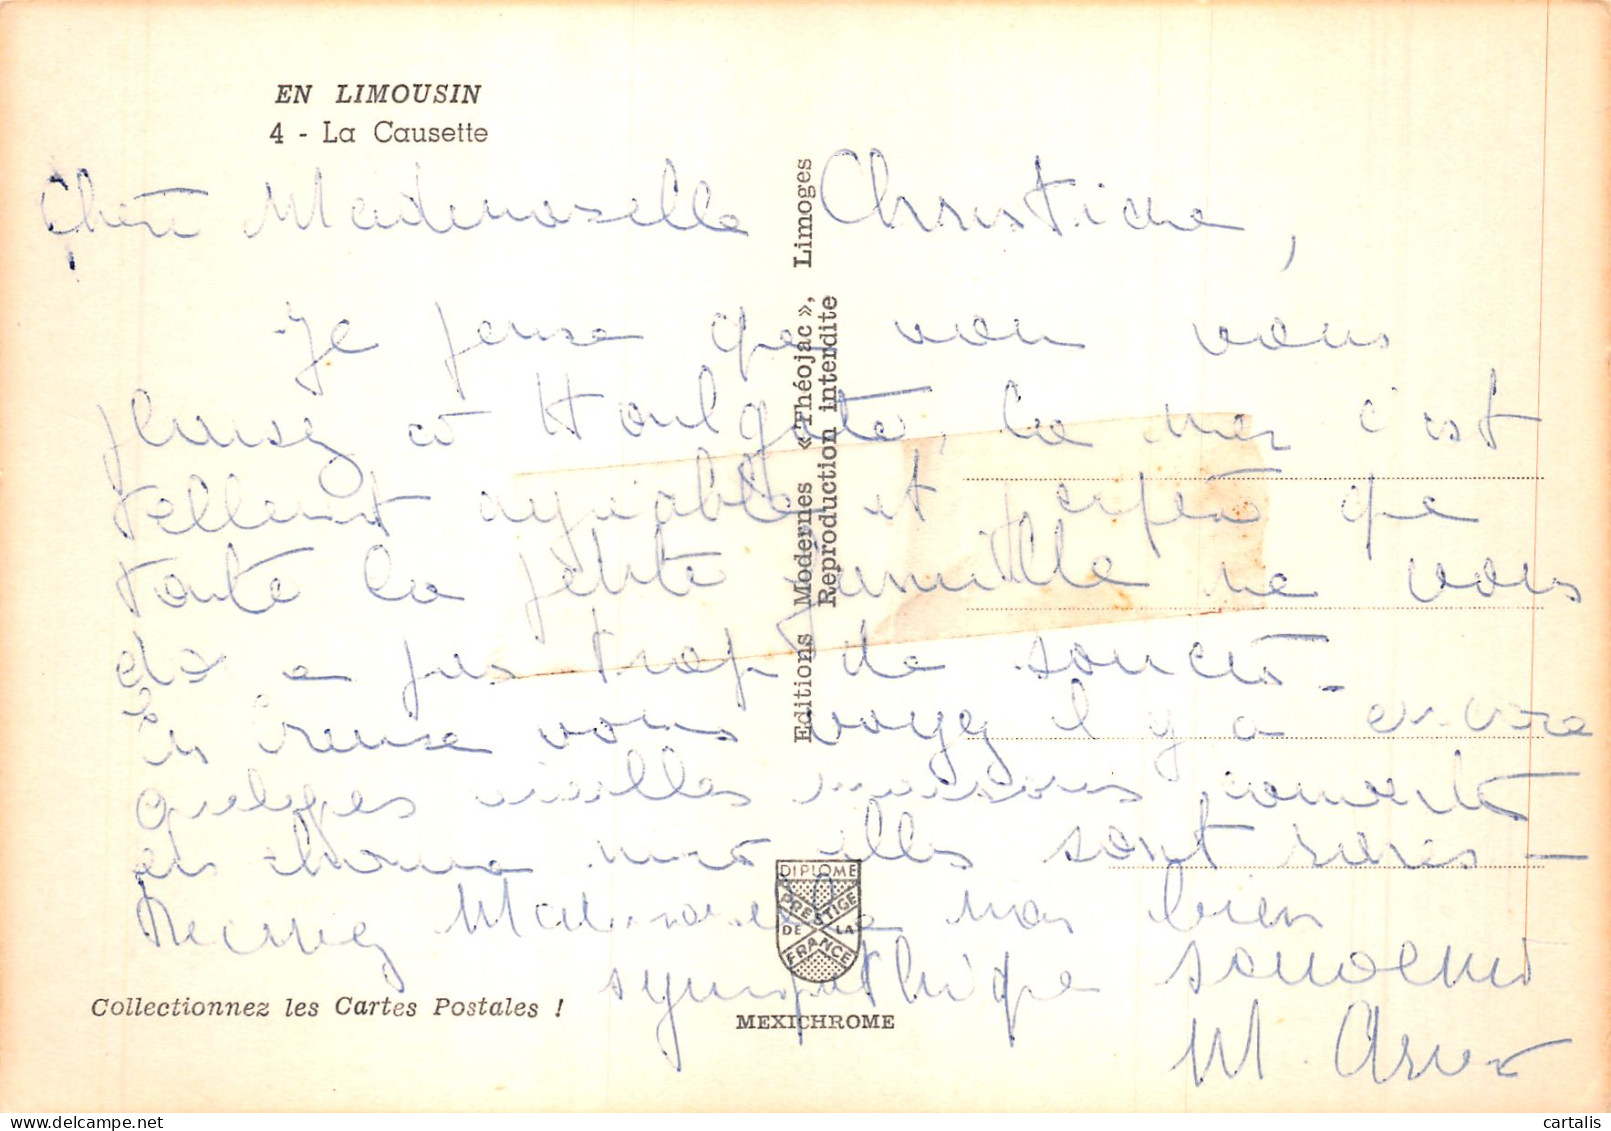 EN LIMOUSIN
4 - La Causette
Chère Mademoiselle Christiane,
Je pense que vous vous
plaisez à Houlgate, la mer c'est
tellement agréable et j'espère que
toute la petite famille ne vous
da a pas trop de soucis.
En Creuse vous voyez il y a encore
quelques vieilles maisons couvertes
en chaume mais elles sont rares -
Recevez Mademoiselle nos bien
sympathique souvenirs
M.
Editions Modernes « Théojac », Limoges
Reproduction interdite
DIPLOME
PRESTIGE
DE LA
FRANCE
MEXICHROME
Collectionnez les Cartes Postales !
cartalis